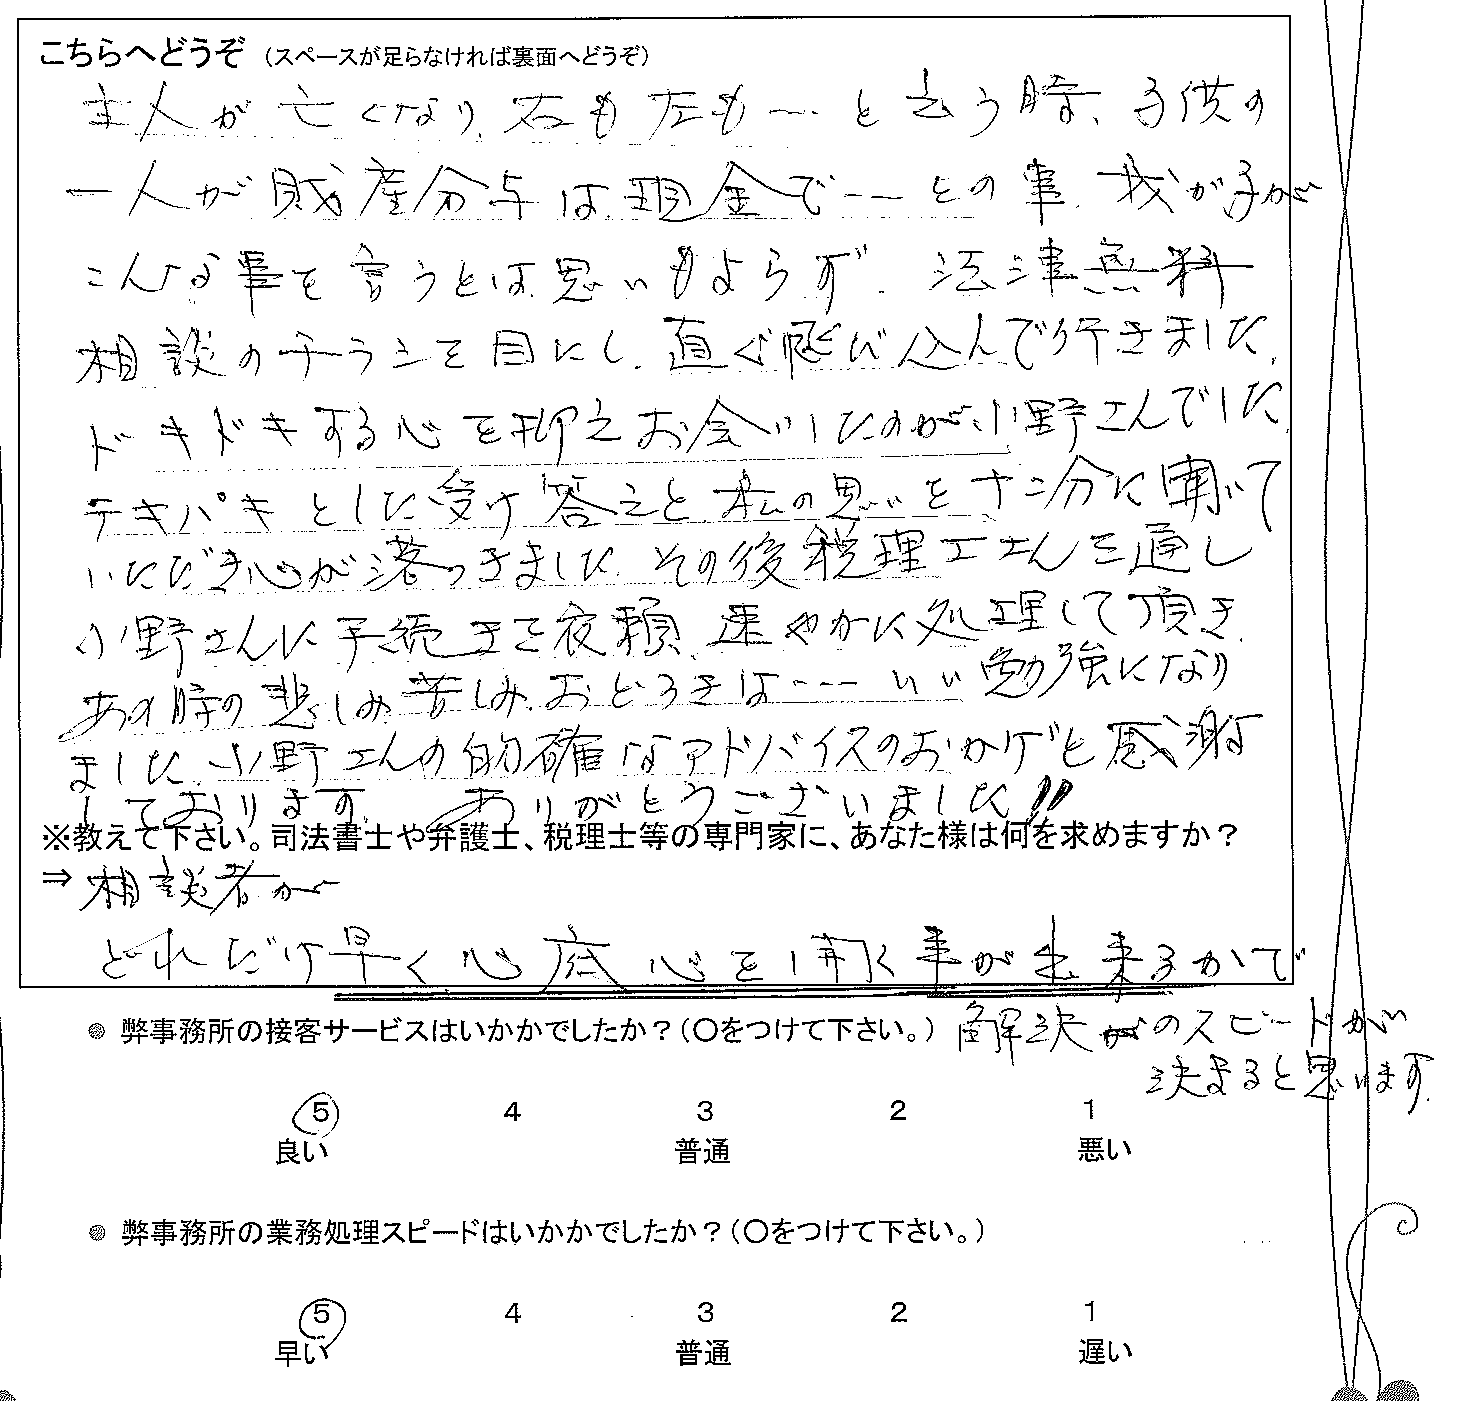 こちらへどうぞ（スペースが足らなければ裏面へどうぞ）
主人が亡くなり、右も左も…と云う時、子供の
一人が財産分与は現金で……との事、我が子が
こんな事を言うとは思いもよらず、法律無料
相談のチラシを目にし、直ぐ飛び込んで行きました。
ドキドキする心を抑えお会いしたのが、小野さんでした。
テキパキとした受け答えと、私の思いを十二分に聞いて
いただき心が落つきました。その後税理士さんを通し
小野さんに手続きを依頼、速やかに処理して頂き、
あの時の悲しみ苦しみ、おどろきは……いい勉強になり
ました。小野さんの的確なアドバイスのおかげと感謝
しております。ありがとうございました!!
※教えて下さい。司法書士や弁護士、税理士等の専門家に、あなた様は何を求めますか？
⇒相談者が
どれだけ早く心底心を開く事が出来るかで
解決のスピードが
決まると思います。
● 弊事務所の接客サービスはいかかでしたか？（〇をつけて下さい。）
5 4 3 2 1
良い 普通 悪い
● 弊事務所の業務処理スピードはいかかでしたか？（〇をつけて下さい。）
5 4 3 2 1
早い 普通 遅い